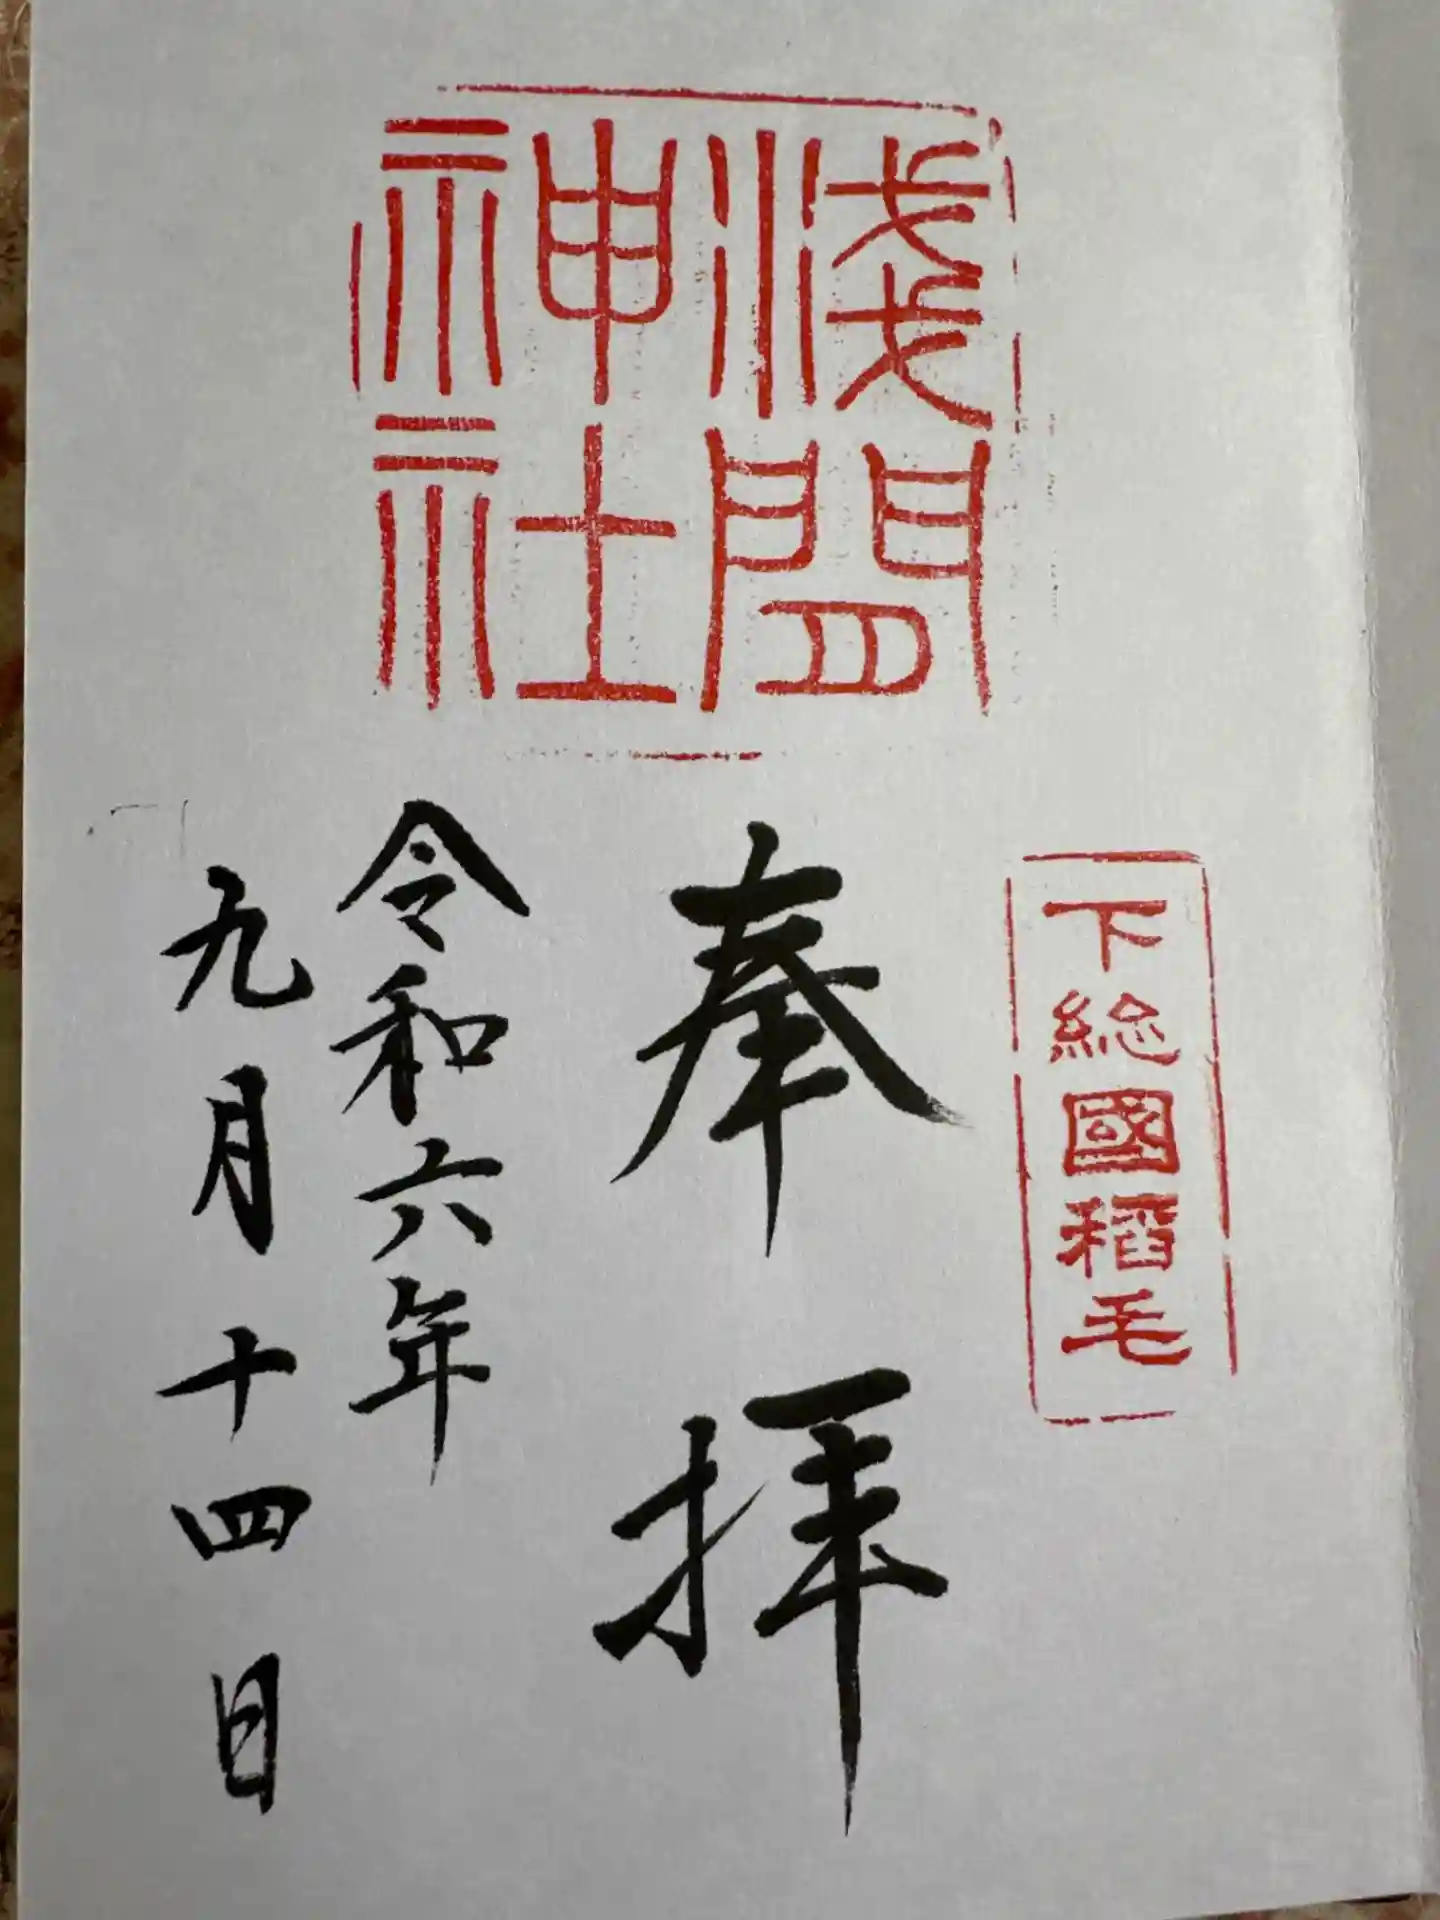 淺間
神社
下総國稻毛
奉拝
令和六年
九月十四日